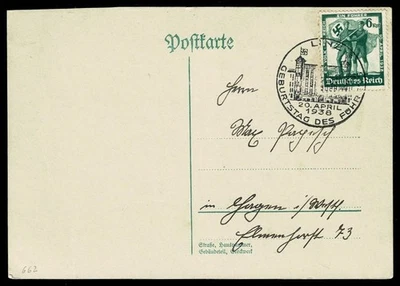 EIN FÜHRER
6
Deutsches Reich
Postkarte
LINZ
20. APRIL
1938
GEBURTSTAG DES FÜHR
Herrn
Max
in Hagen i/Westf.
Elmenhorst 73
Straße, Hausnummer,
Gebäudeteil, Stockwerk
662